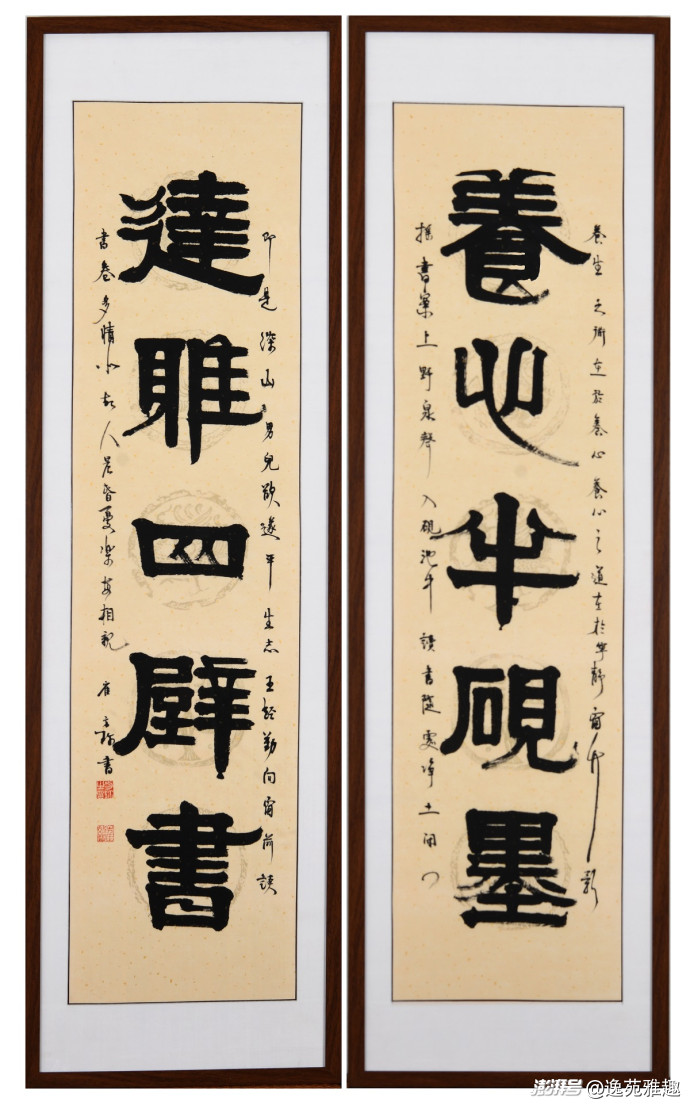 养生之術在於养心养心之道在於寧静窗竹影
養心半硯墨
搖書案上野泉聲入硯池中讀書随處净土闭门
即是深山男兒欲遂平生志五经勤向窗前读
達雅四壁書
書卷多情似故人晨昏憂樂每相親 崔書
澎湃号@逸苑雅趣